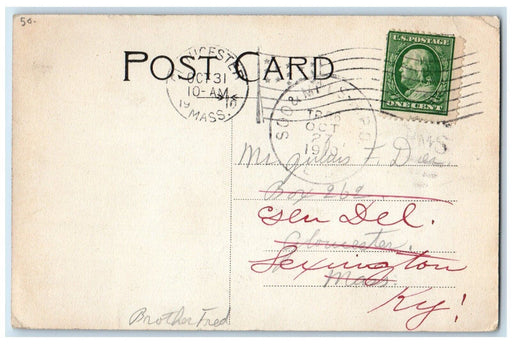 50.
POST CARD
GLOUCESTER
OCT 31
10-AM
1910
MASS.
SOO & MPLS. R.P.O.
OCT
27
1910
U.S. POSTAGE
ONE CENT
F.
Box 262
Gen Del.
Gloucester.
Lexington
Mass.
Ky!
Brother Fred